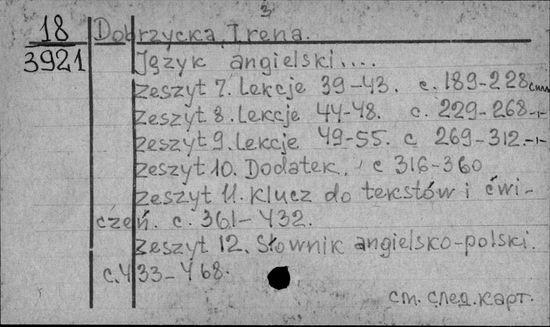 3
18 Dobrzycka Irena.
3921 Język angielski....
zeszyt 7. Lekcje 39-43. с. 189-228
zeszyt 8. Lekcje 44-48. с. 229-268-„-
zeszyt 9. Lekcje 49-55. с 269-312.-„-
zeszyt 10. Dodatek. с 316-360
zeszyt 11. Klucz do tekstów i ćwi-
czeń. с. 361-432.
zeszyt 12. Słownik angielsko-polski.
с. 433-468.
см. след. карт.